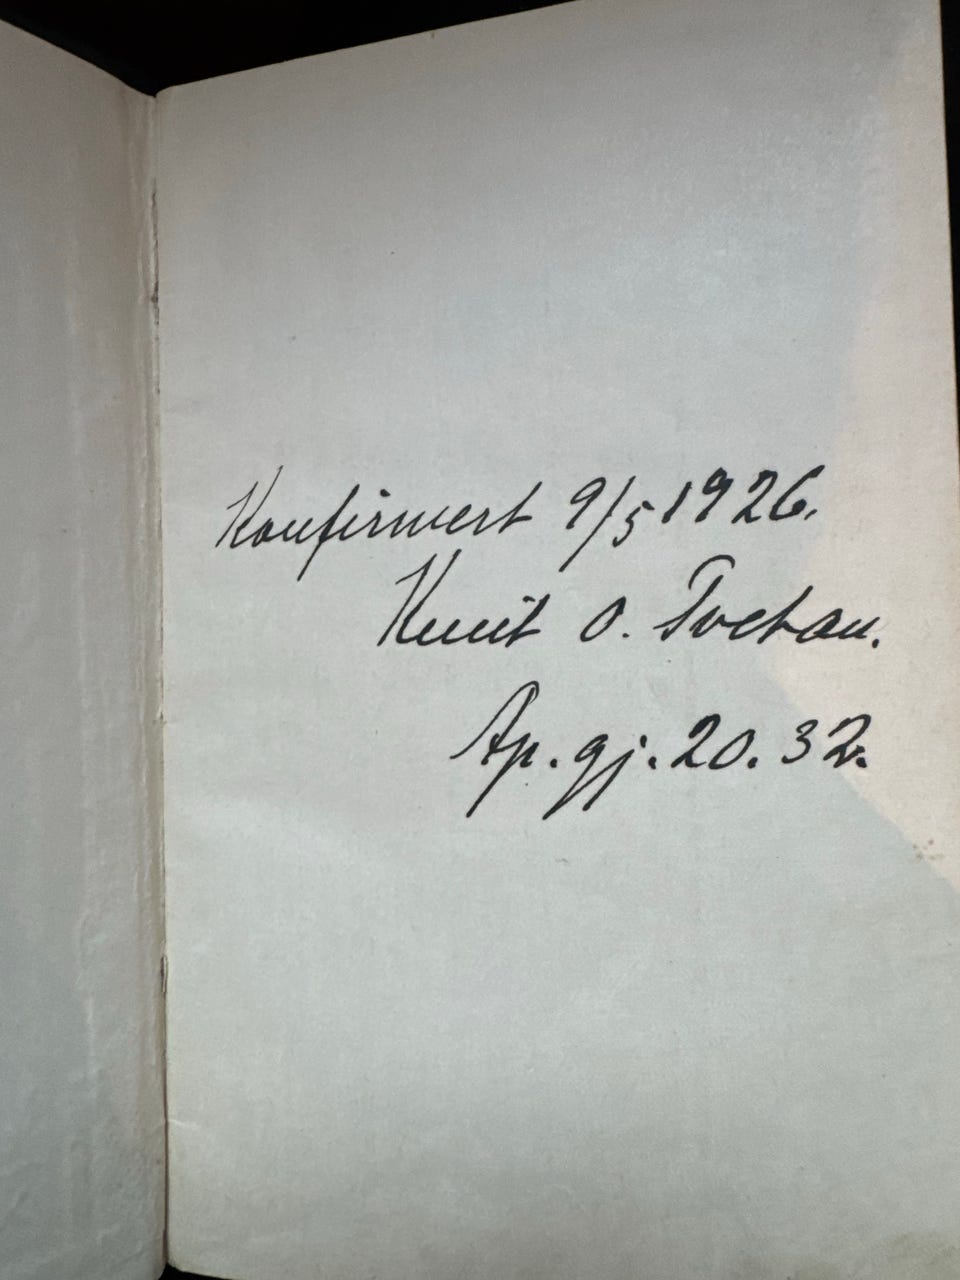 Konfirmert 9/5 1926.
Knut O. Tvetan.
Ap. gj. 20. 32.